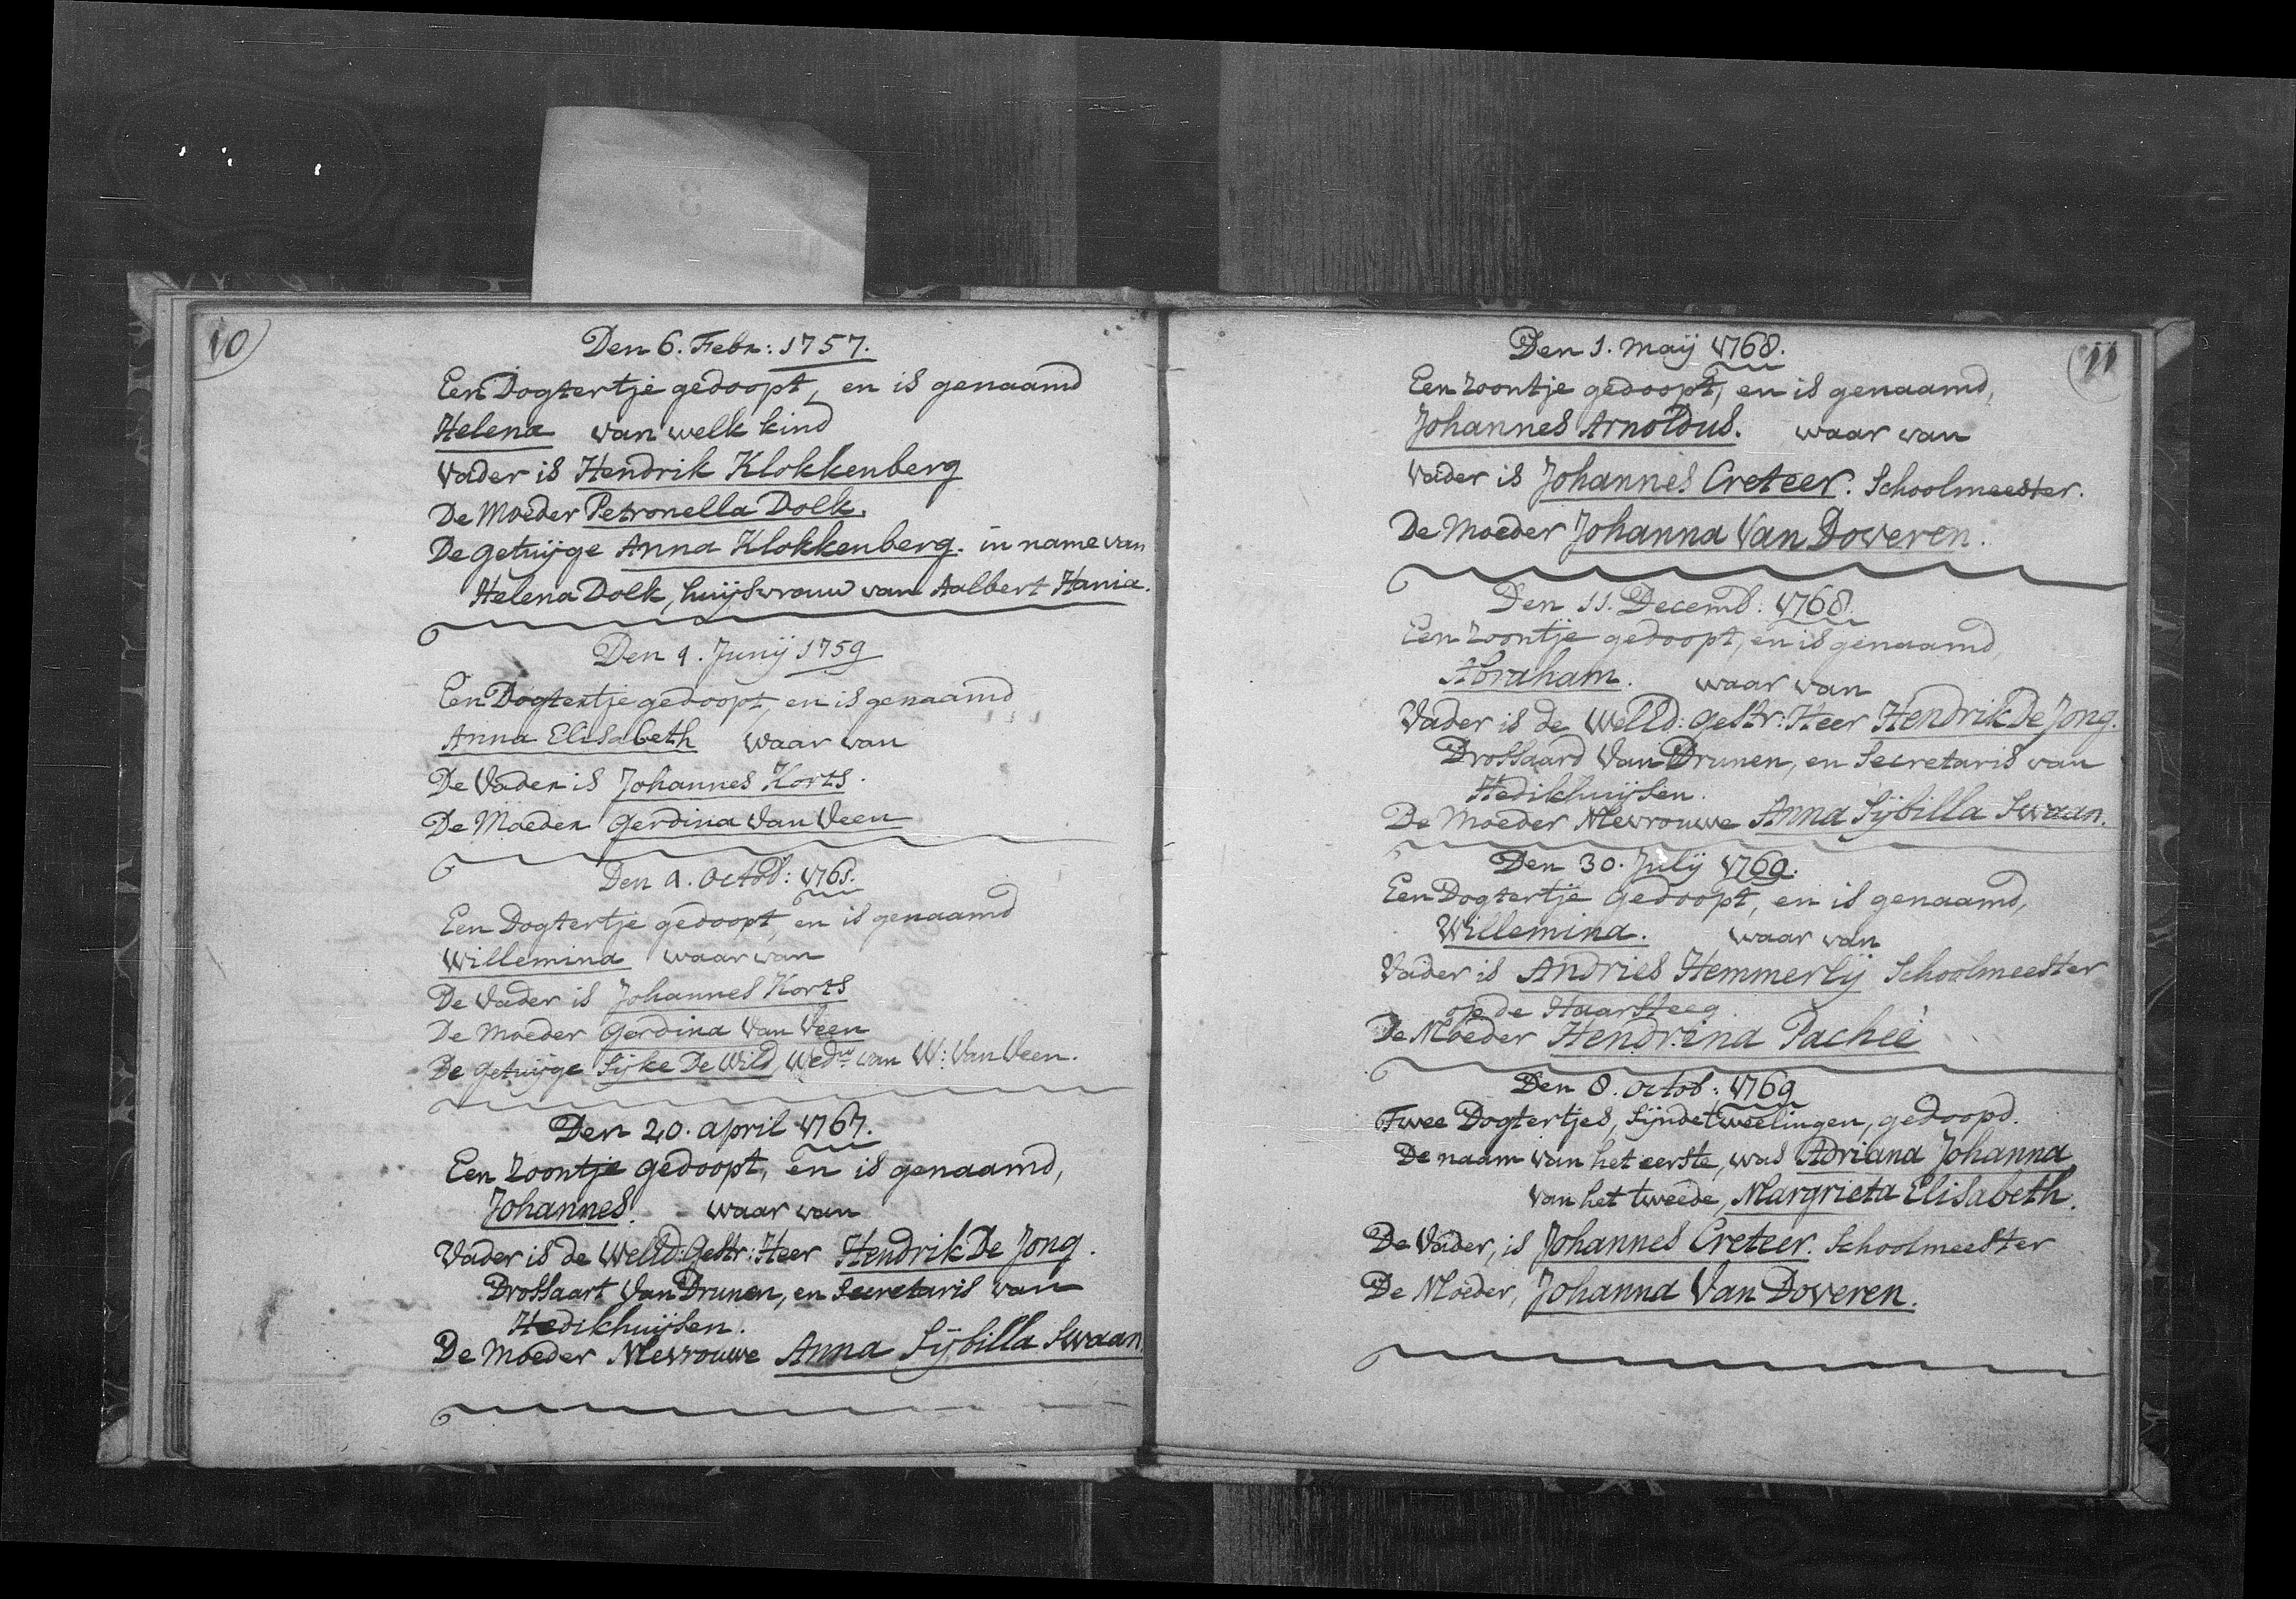 10
Den 6. Febr: 1757.
Een Dogtertje gedoopt, en is genaamd
Helena van welk kind
Vader is Hendrik Klokkenberg
De Moeder Petronella Dolk.
De getuijge Anna Klokkenberg. in name van
Helena Dolk, huijsvrouw van Aalbert Hania.
Den 9. Junij 1759
Een Dogtertje gedoopt, en is genaamd
Anna Elisabeth waar van
De Vader is Johannes Korts.
De Moeder Gerdina Van Veen
Den 9. Octob: 1761.
Een Dogtertje gedoopt, en is genaamd
Willemina waar van
De Vader is Johannes Korts
De Moeder Gerdina Van Veen
De getuijge Sijke De Wild, Wedw: van W: Van Veen.
Den 20. april 1767.
Een Zoontje gedoopt, en is genaamd,
Johannes. waar van
Vader is de WelEd: Gestr: Heer Hendrik De Jong.
Drossaart Van Drunen, en Secretaris van
Hedikhuijsen.
De Moeder Mevrouwe Anna Sijbilla Swaan.
11
Den 1. Maij 1768.
Een Zoontje gedoopt, en is genaamd,
Johannes Arnoldus. waar van
Vader is Johannes Creteer. Schoolmeester.
De Moeder Johanna Van Doveren.
Den 11. Decemb. 1768.
Een Zoontje gedoopt, en is genaamd,
Abraham. waar van
Vader is de WelEd: Gestr: Heer Hendrik De Jong.
Drossaard Van Drunen, en Secretaris van
Hedikhuijsen.
De Moeder Mevrouwe Anna Sijbilla Swaan.
Den 30. Julij 1769.
Een Dogtertje Gedoopt, en is genaamd,
Willemina. waar van
Vader is Andries Hemmerlij Schoolmeester
op de Haarsteeg.
De Moeder Hendrina Pacheé
Den 8. Octob: 1769
Twee Dogtertjes, sijnde tweelingen, gedoopd.
De naam van het eerste, was Adriana Johanna
van het tweede, Margrieta Elisabeth.
De Vader, is Johannes Creteer. Schoolmeester
De Moeder, Johanna Van Doveren.